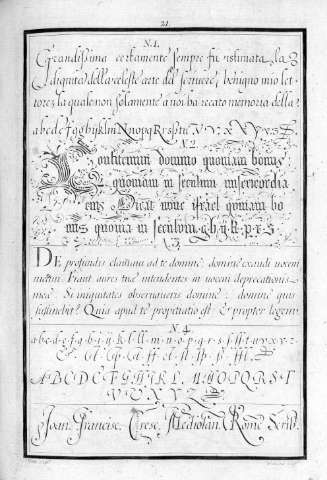 21.
N.1.
Grandissima certamente sempre fu istimata la
dignita della celeste arte del scriuere, benigno mio let-
tore, la quale non solamente a noi ha reccato memoria della
a b c d e f g g h i j k l m N n o p q R r s s t u
N 2
Confitemini domino quoniam bonus
quoniam in seculum misericordia
eius Dicat nunc israel quoniam bo
nus quonia in seculum. g. h. y. k. p. r. s
DE profundis clamaui ad te domine, domine exaudi uocem
meam. Fiant aures tuæ intendentes in uocem deprecationis
meæ. Si iniquitates obseruaueris domine: domine quis
sustinebit? Quia apud te propitiatio est & propter legem
N. 4.
A B C D E F G H I K L M N O P Q R S T
Joan. Francisc. Cresc. Mediolan. Rome Scrib.